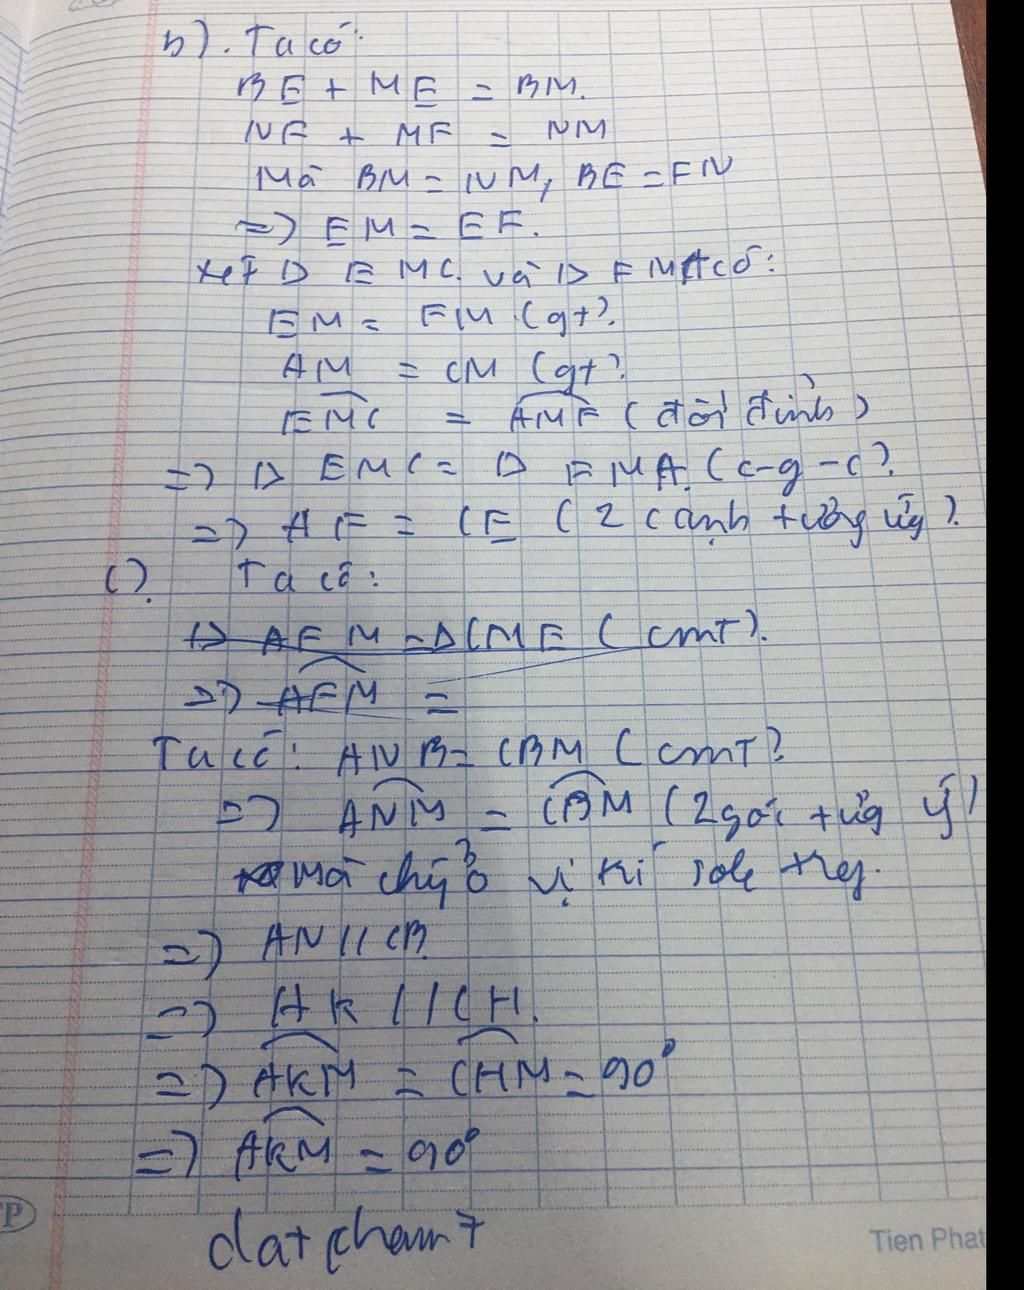 b). Ta có:
BE + ME = BM.
NF + MF = NM
Mà BM = NM, BE = FN
=> EM = EF.
xét Δ EMC và Δ FMA có:
EM = FM (gt).
AM = CM (gt).
EMC = AMF (đối đỉnh)
=> Δ EMC = Δ FMA (c-g-c).
=> AF = CE (2 cạnh tương ứng).
c). Ta có:
Δ AFM = Δ CME (cmT).
=> AFM =
Ta có: ANB = CBM (cmT)
=> ANM = CBM (2 góc t ứg ý)
Mà chúg ở vị trí sole trg.
=> AN // CB
=> AK // CH.
=> AKM = CHM = 90°
=> AKM = 90°
datpham7
P
Tien Phat